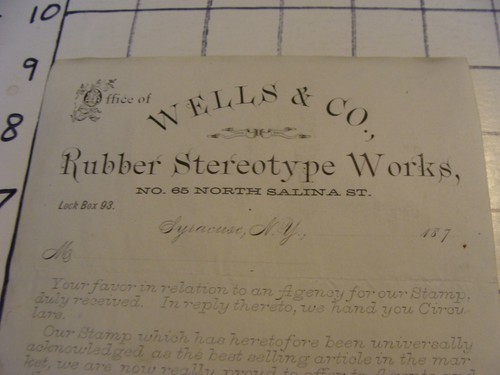 10
9
8
7
Office of
WELLS & CO.,
Rubber Stereotype Works,
NO. 65 NORTH SALINA ST.
Lock Box 93.
Syracuse, N.Y., 187
M
Your favor in relation to an Agency for our Stamp,
duly received. In reply thereto, we hand you Circu-
lars.
Our Stamp which has heretofore been universally
acknowledged as the best selling article in the mar-
ket, we are now really proud to offer to Agents and